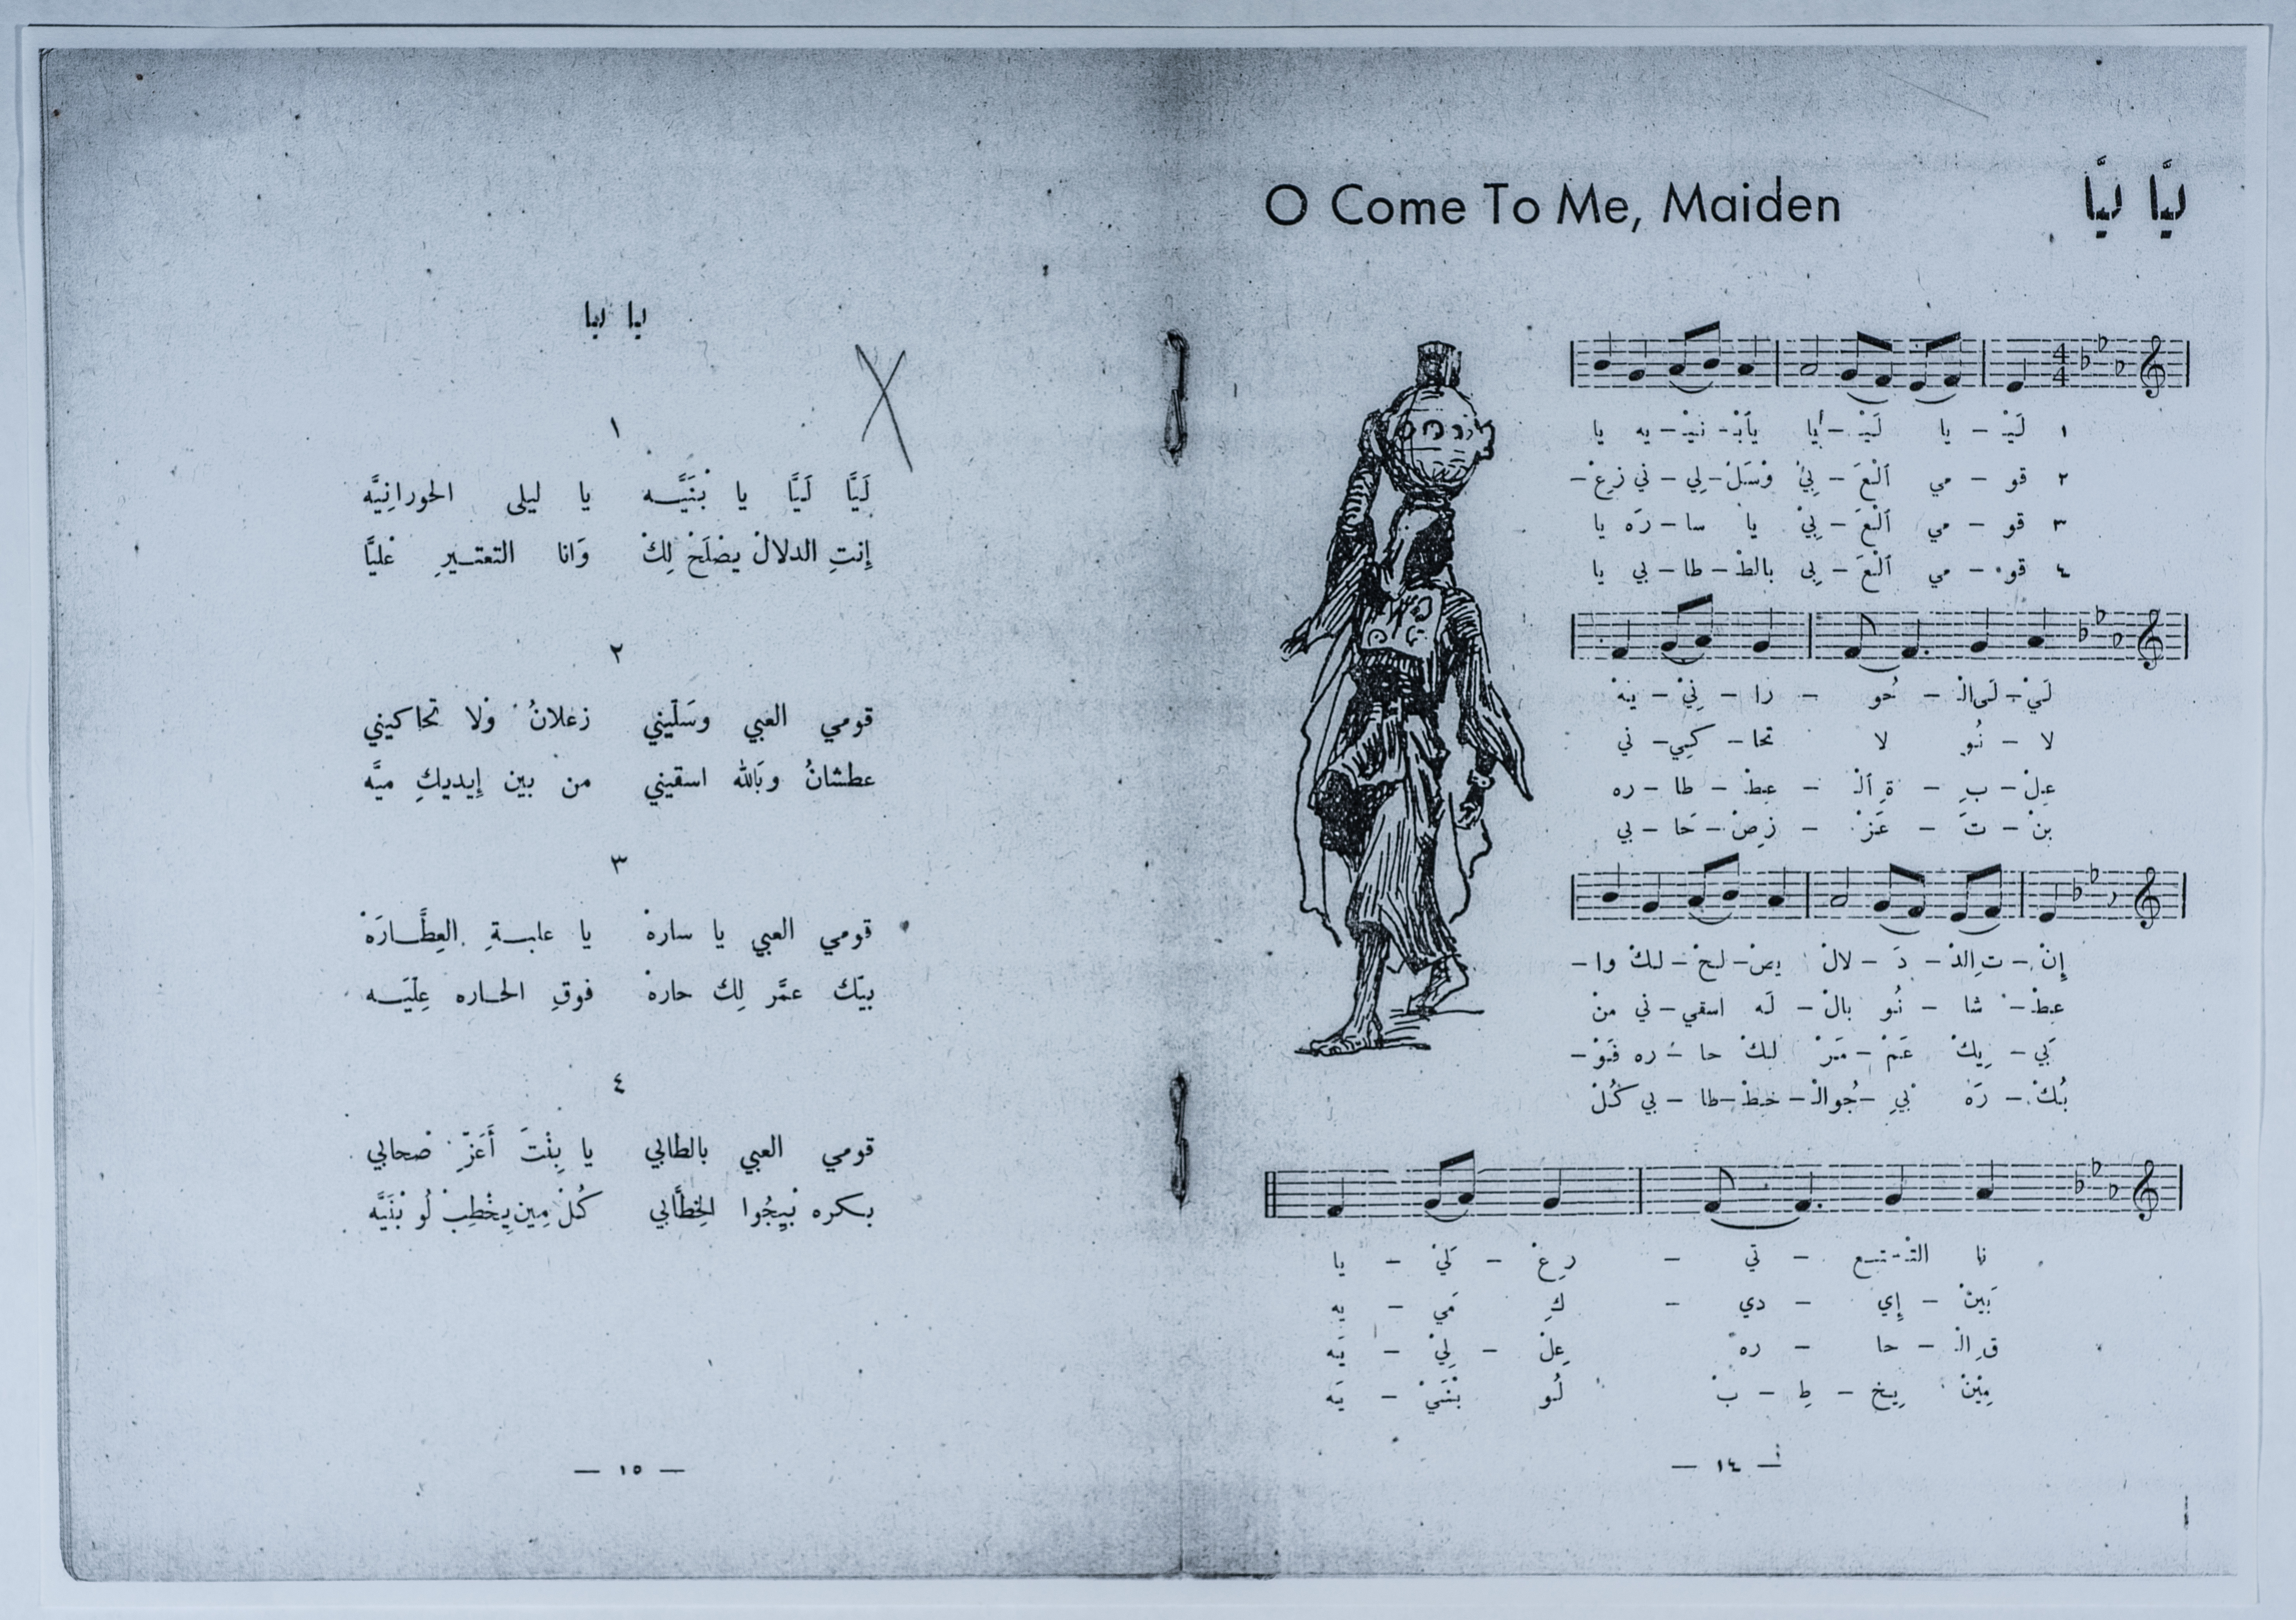 O Come To Me, Maiden
لَيَّا لَيَّا
١ لَيْ - يا لَيْ - يا يابْ - نَيْ - يه يا
٢ قو - مي ٱلْعَ - بِيْ وْسَلْ - لِي - ني زعْ -
٣ قو - مي ٱلْعَ - بِيْ يا سا - رَه يا
٤ قو - مي ٱلْعَ - بِي بالطْ - طا - بي يا
لَيْ - لَى الـ - حُو - را - نِيْ - يهْ
لا - نُو لا تحا - كيي - ني
عِلْ - بـِ - ةِ ٱلـ - عِطْ - طا - ره
بِنْ - تَ - عَزْ - زِصْ - حَا - بي
إِنْ - تِ الدْ - دَ - لالْ يصْ - لَحْ - لكْ وا -
عطْ - شا - نُو بالْ - لَه اسقي - ني منْ
بَي - يكْ عَمْ - مَرْ لكْ حا - ره فَوْ -
بُكْ - رَه بِي - جُو الـ - خطْ - طا - بي كُلْ
نا التْـ - تـع - تي - رِعْ - لَيْ - يا
بَينْ - إِي - دي - كِ مَي - يه
قِ الْـ - حا - ره عِلْ - لِيْ - يَه
مِيْنْ يِخْ - طِ - بْ لُو بْنَيْ - يَه
— ١٤ —
ليا ليا
١
لَيَّا لَيَّا يا بْنَيَّـه يا ليلى الحورانِيَّه
إِنتِ الدلالْ يصْلَحْ لِكْ وَانا التعتـيرِ عْليَّا
٢
قومي العبي وسَلّيني زعلانُ وْلا تحاكيني
عطشانُ وبَالله اسقيني من بين إِيديكِ ميَّه
٣
قومي العبي يا سارهْ يا علبـةِ العِطَّـارَهْ
بيّك عمَّر لِك حارهْ فوقِ الحـاره عِلّيَـه
٤
قومي العبي بالطابي يا بِنْتَ أَعَزِّ صْحابي
بكره بْيِجُوا الخِطَّابي كُلْ مِين يِخْطِبْ لُو بْنَيَّه
— ١٥ —